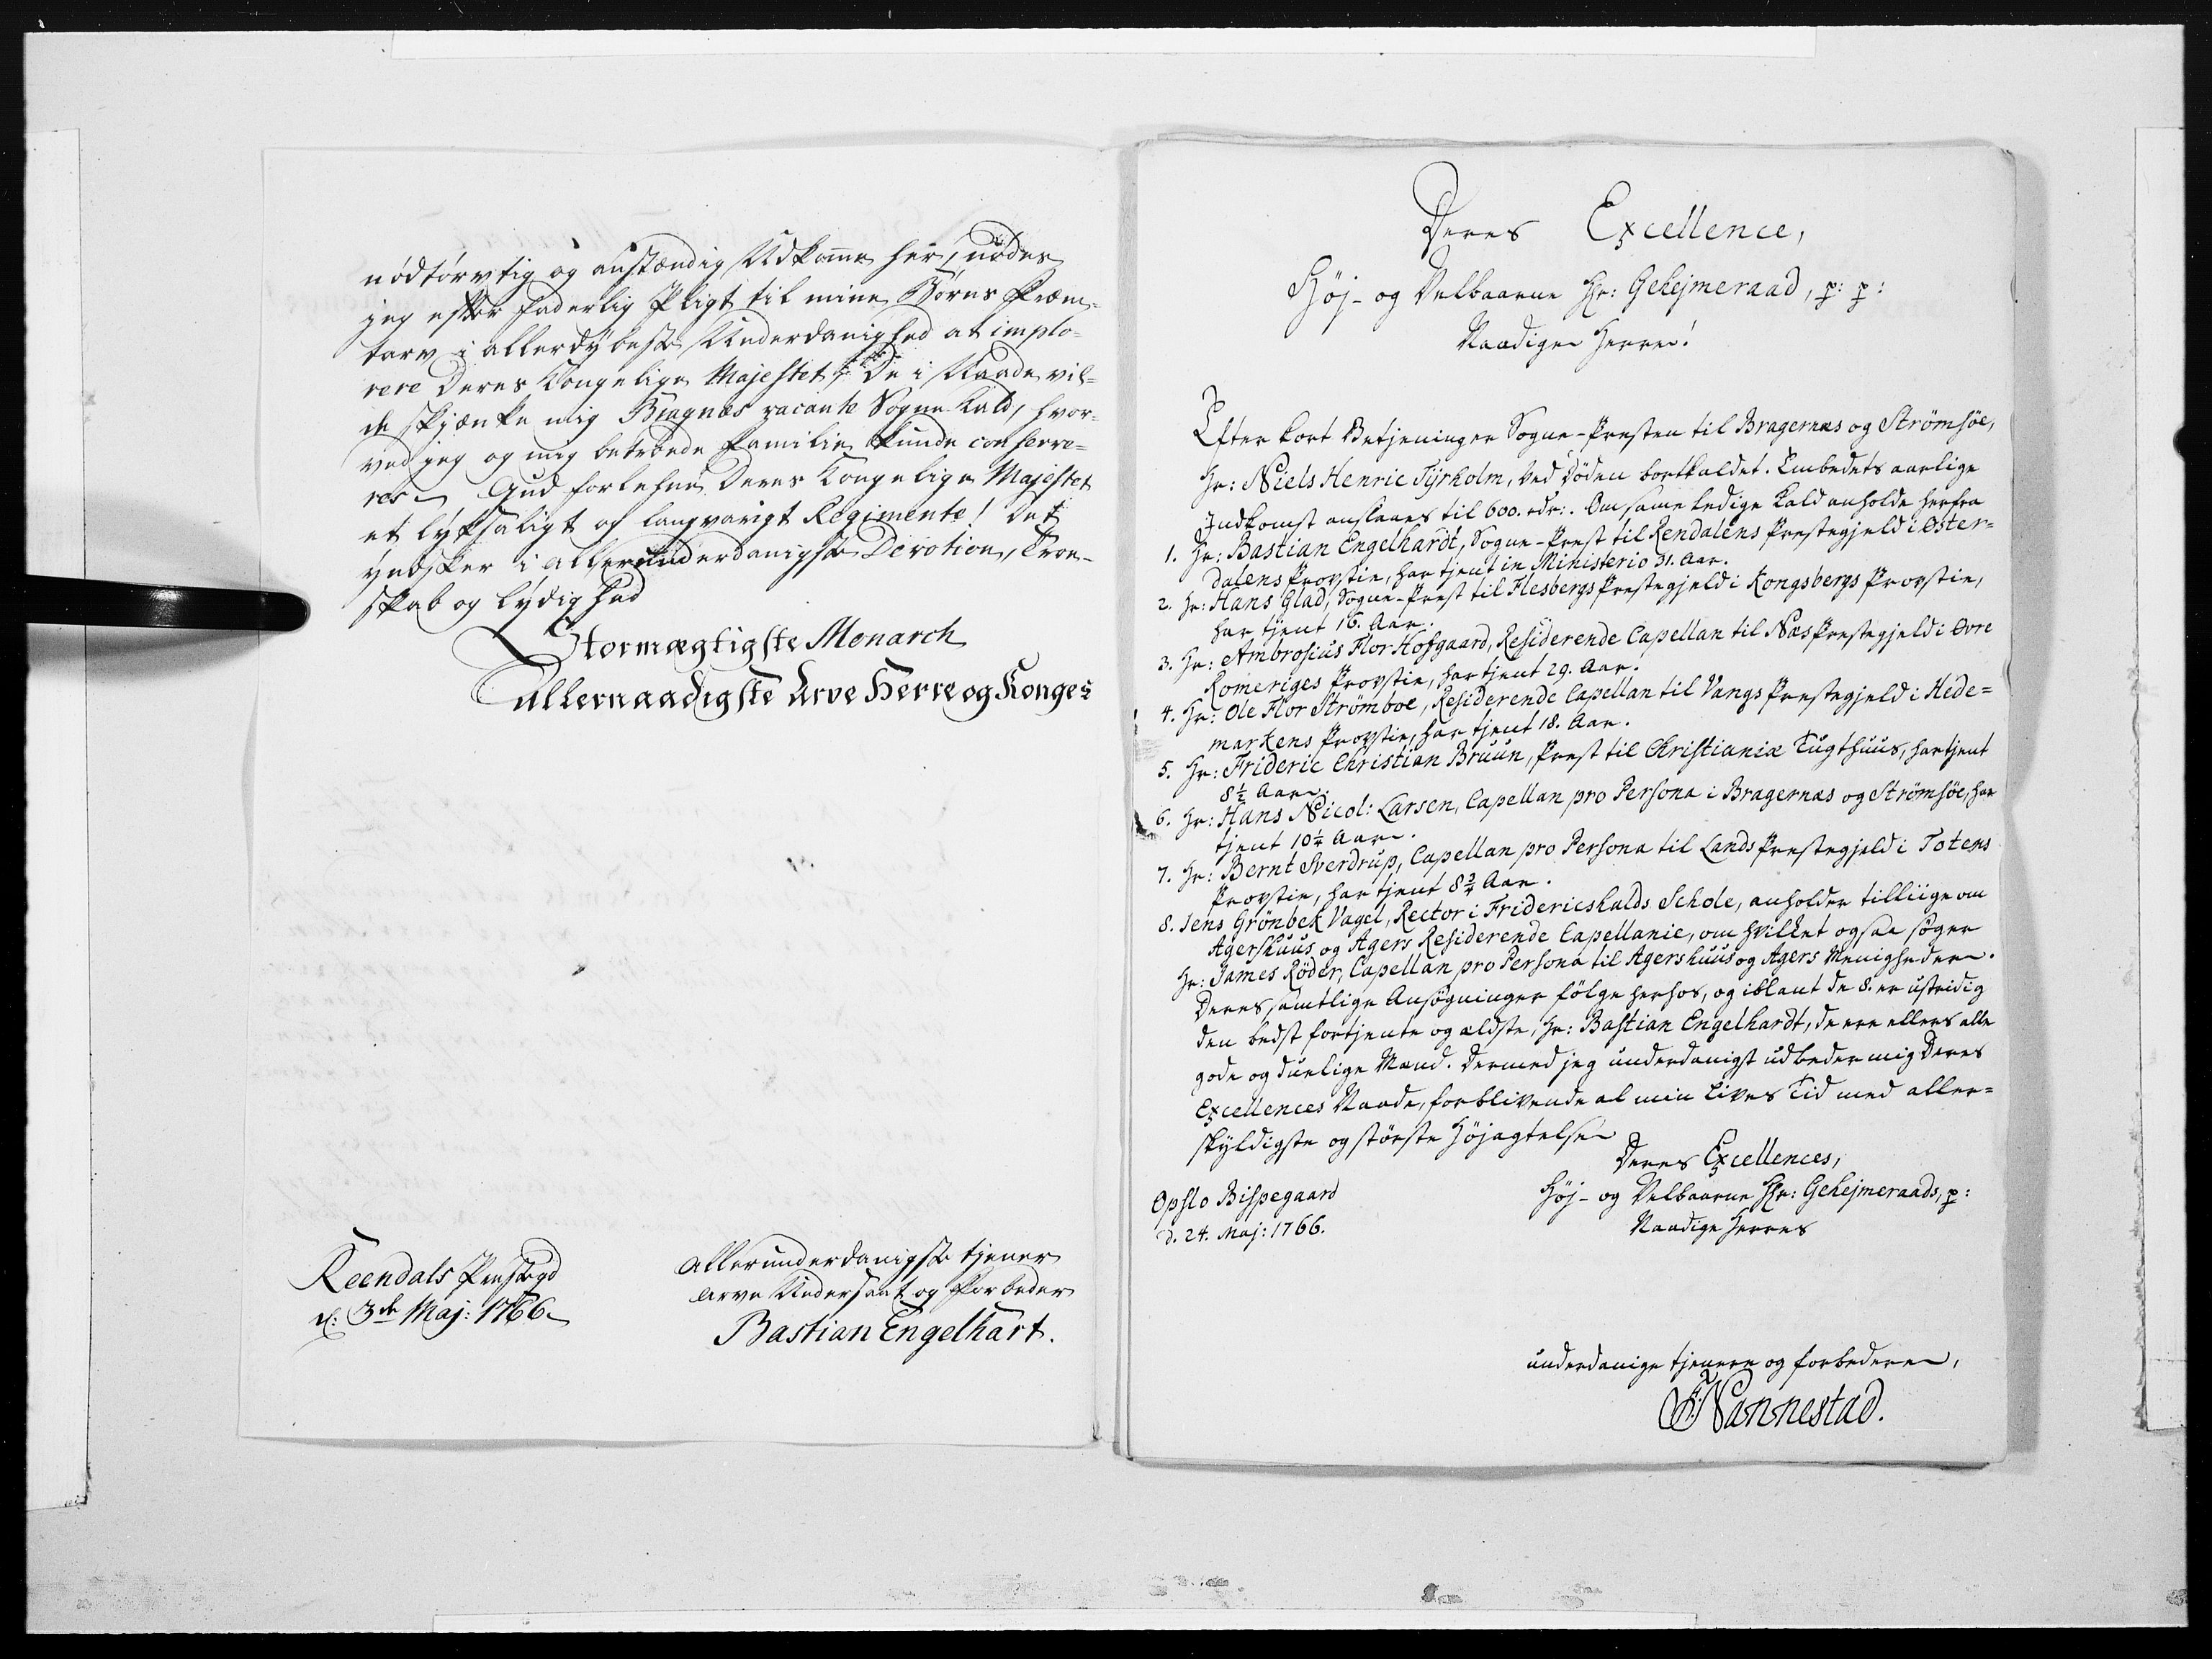 nødtørvtig og anstændig Udkomme her, nødes
jeg efter faderlig Pligt til mine Børns Fræm-
tarv i allerdybeste Underdanighed at implo-
rere Deres Kongelige Majestet, De i Naade vil-
de skjænke mig Bragnæs vacante Sogne-Kald, hvor-
ved jeg og mig betroede Familie kunde conserve-
res. Gud forlehne Deres Kongelige Majestet
et lyksaligt og langvarigt Regimente! Det
ynsker i allerunderdanigste Devotion, Troe-
skab og lydighed
Stormægtigste Monarch
Allernaadigste Arve Herre og Konges
Reendals Præstegd
d: 3de Maj: 1766
allerunderdanigste tjener
Arve Undersaat og Forbeder
Bastian Engelhart.
Deres Excellence,
Høj- og Velbaarne Hr: Gehejmeraad, p: p:
Naadige Herre!
Efter kort Betjeninger Sogne-Presten til Bragernæs og Strömsöe,
Hr: Niels Henric Tyrholm, ved Døden bortkaldet. Embedets aarlige
Indkomst anslaaes til 600. rdr:. Om samme ledige Kald anholde herfra
1. Hr: Bastian Engelhardt, Sogne-Prest til Rendalens Prestegjeld i Øster-
dalens Provstie, har tjent in Ministerio 31. Aar.
2. Hr: Hans Glad, Sogne-Prest til Flesbergs Prestegjeld i Kongsbergs Provstie,
har tjent 16. Aar.
3. Hr: Ambrosius Flor Hofgaard, Residerende Capellan til Næs Prestegjeld i Øvre
Romeriges Provstie, har tjent 29. Aar.
4. Hr: Ole Flor Strömboe, Residerende Capellan til Vangs Prestegjeld i Hede-
markens Provstie, har tjent 18. Aar.
5. Hr: Frideric Christian Bruun, Prest til Christianiæ Tugthuus, har tjent
8½ Aar.
6. Hr: Hans Nicol: Larsen, Capellan pro Persona i Bragernæs og Strömsöe, har
tjent 10¼ Aar.
7. Hr: Bernt Sverdrup, Capellan pro Persona til Lands Prestegjeld i Totens
Provstie, har tjent 8¾ Aar.
8. Jens Grönbek Vagel, Rector i Fridericshalds Schole, anholder tilliige om
Agershuus og Agers Residerende Capellanie, om hvilket ogsaa søger
Hr: James Röder, Capellan pro Persona til Agershuus og Agers Menigheder.
Deres samtlige Ansøgninger følge herhos, og iblant de 8. er ustridig
den bedst fortjente og ældste, Hr: Bastian Engelhardt, de ere ellers alle
gode og duelige Mænd. Dermed jeg underdanigst udbeder mig Deres
Excellences Naade, forblivende al min Lives Tid med aller-
skyldigste og største Højagtelse
Deres Excellences,
Høj- og Velbaarne Hr: Gehejmeraads, p:
Naadige Herres
Opslo Bispegaard
d. 24. Maj: 1766.
underdanige tjenere og forbedere,
F: Nannestad.